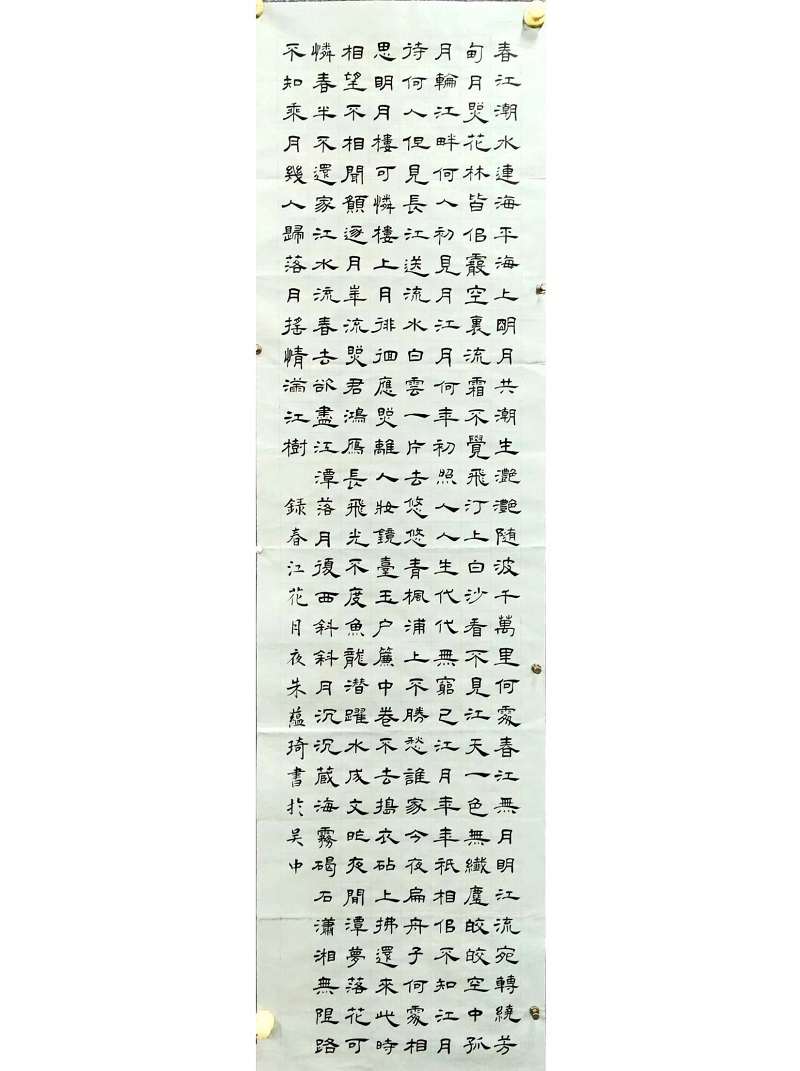 春江潮水連海平海上明月共潮生灩灩随波千萬里何處春江無月明江流宛轉繞芳
甸月照花林皆佀霰空裏流霜不覺飛汀上白沙看不見江天一色無纖塵皎皎空中孤
月輪江畔何人初見月江月何年初照人人生代代無窮已江月年年祇相佀不知江月
待何人但見長江送流水白雲一片去悠悠青楓浦上不勝愁誰家今夜扁舟子何處相
思明月樓可憐樓上月徘徊應照離人妝鏡臺玉户簾中卷不去搗衣砧上拂還來此時
相望不相聞願逐月華流照君鴻雁長飛光不度魚龍潜躍水成文昨夜閒潭夢落花可
憐春半不還家江水流春去欲盡江潭落月復西斜斜月沉沉藏海霧碣石瀟湘無限路
不知乘月幾人歸落月摇情滿江樹 録春江花月夜朱蕴琦書於吴中